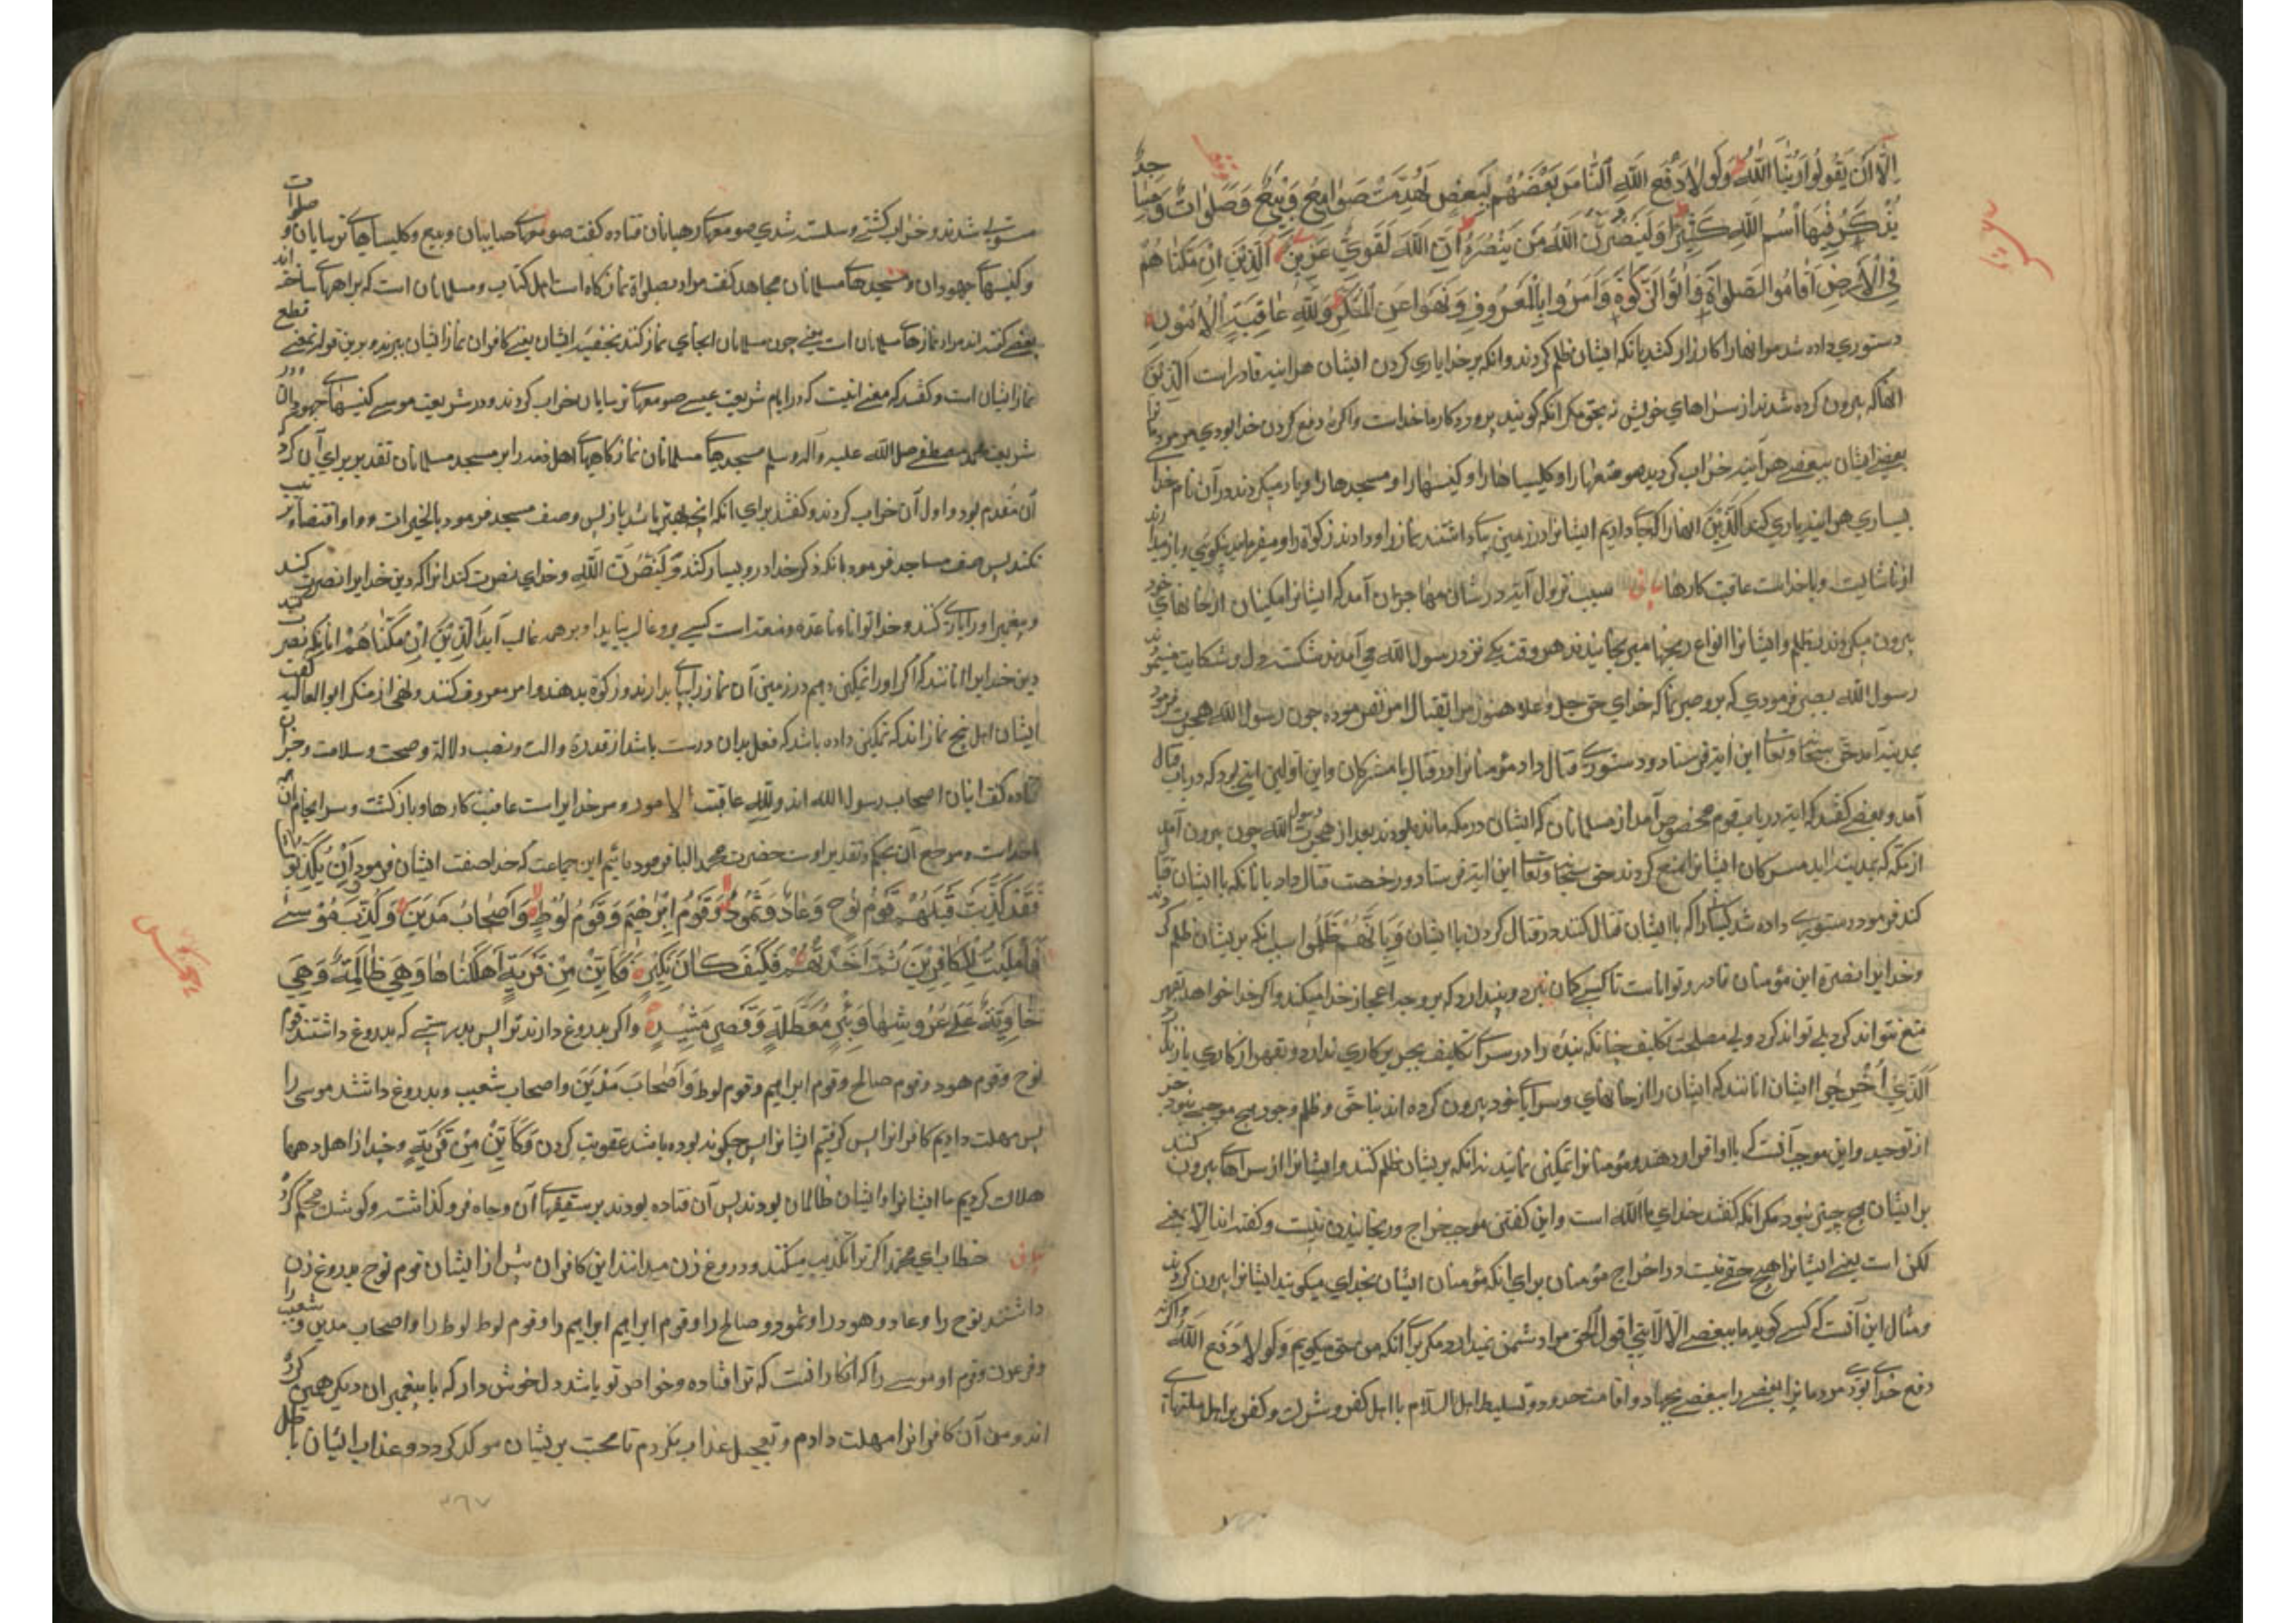 اِلَّا اَنْ یَقُولُوا رَبُّنَا اللّٰهُ وَلَوْلَا دَفْعُ اللّٰهِ النَّاسَ بَعْضَهُمْ بِبَعْضٍ لَهُدِّمَتْ صَوَامِعُ وَبِیَعٌ وَصَلَوَاتٌ وَمَسَاجِدُ
یُذْكَرُ فِیهَا اسْمُ اللّٰهِ كَثِیرًا وَلَیَنْصُرَنَّ اللّٰهُ مَنْ یَنْصُرُهُ اِنَّ اللّٰهَ لَقَوِیٌّ عَزِیزٌ اَلَّذِینَ اِنْ مَكَّنَّاهُمْ
فِی الْاَرْضِ اَقَامُوا الصَّلٰوةَ وَاٰتَوُا الزَّكٰوةَ وَاَمَرُوا بِالْمَعْرُوفِ وَنَهَوْا عَنِ الْمُنْكَرِ وَلِلّٰهِ عَاقِبَةُ الْاُمُورِ
دستوری داده شد مر انها را كارزار كنند بانكه ایشان ظلم كردند وانكه بر خدا یاری كردن ایشان هر اینه قادر است الذین
انها كه بیرون كرده شدند از سراهای خویش نه بحق مكر انكه كویند پرورد كار ما خداست واكر نه دفع كردن خدا بودی مر مردمانرا
بعضی ایشان ببعضی هر آینه خراب كردید صومعها را و كلیساها را و كنیسها را و مسجدها را و یاد میكردند در آن نام خدا
بسیاری هر اینه یاری كند الَّذِینَ انها را كه جای دادیم ایشانرا در زمین بپای داشتند نماز را و دادند زكوة را و میفرمایند بنیكویی و باز میدارند
از ناشایست و با خداست عاقبت كارها سبب نزول آیة در شان مهاجران آمد كه ایشانرا مكیان از خانهای خود
بیرون میكردند بظلم و ایشانرا انواع رنجها میرنجانیدند هر وقت یكی نزد رسول الله می آمدند شكسته دل و شكایت مینمودند
رسول الله بصبر فرمودی كه برو صبر نما كه خدای حق جل وعلا هنوز مرا بقتال امر نفرموده چون رسول الله هجرت فرمود
بمدینه آمد حق سبحانه وتعالی این آیه فرستاد و دستوری قتال داد مؤمنانرا در قتال با مشركان و این اولین ایتی بود كه در باب قتال
آمد و بعضی كفتند كه ایه در باب قوم مخصوص آمد از مسلمانان كه ایشان در مكه مانده بودند بعد از هجرت رسول الله چون بیرون آمدند
از مكه كه بمدینه اید مشركان ایشانرا منع كردند حق سبحانه وتعالی این ایة فرستاد و رخصت قتال داد بانكه با ایشان قتال
كند فرمود دستوری داده شد كسانیرا كه با ایشان قتال كنند در قتال كردن با ایشان وَبِاَنَّهُمْ ظُلِمُوا بسبب انكه بر یشان ظلم كردند
و خدا یرا نصرة این مؤمنان قادر و توانا است تا كسی كمان نبرد و نپندارد كه بر وجه اعجاز خدا میكند و اكر خدا خواهد بقهر
منع نتواند كرد بلی تواند كرد ولی مصلحت تكلیف چنانكه بنده را در سرای تكلیف بجبر بر كاری ندارد و بقهر از كاری باز ندارد
اَلَّذِینَ اُخْرِجُوا ایشان انانند كه ایشان را از خانهای و سرای خود بیرون كرده اند بناحق و ظلم و جور هیچ موجب نبود جز
از توحید و این موجب آنست كه با او اقرار دهند و مؤمنانرا تمكین نمایند نه انكه بر یشان ظلم كنند و ایشانرا از سراها بیرون كنند
بر ایشان هیچ چیز نبود مكر انكه كفتند خدای ما الله است و این كفتن موجب اخراج و رنجانیدن نیست و كفته اند الا بمعنی
لكن است یعنی ایشانرا هیچ حقی نیست در اخراج مؤمنان برای انكه مؤمنان ایشان بخدای میكویند ایشانرا بیرون كردند
و مثال این آنست كه كسی كوید ما ببغضی الا لانّی اقول الحق مراد شمن نمیدارد مكر برای انكه من حق میكویم وَلَوْلَا دَفْعُ اللّٰه واكر نه
دفع خدای بودی مردمانرا بعضی را ببعضی بجهاد و اقامت حدود و تسلیط اهل اسلام با اهل كفر و شرك و كفر بر اهل ملتها
مستولی شدند و خراب كشتی و سست شدی صومعهای رهبانان قتاده كفت صومعهای صابیان و بیع و كلیساهای ترسایان و صلوات
و كنیسهای جهودان و مسجدهای مسلمانان مجاهد كفت مراد بصلواة نماز كاه است اهل كتاب و مسلمانان است كه بر راهها ساخته اند
بعضی كفته اند مراد نمازهای مسلمانان است یعنی چون مسلمانان ایجای نماز كنند بحقیقت ایشان یعنی كافران نماز ایشان ببرند و برین قول بمعنی قطع
نماز ایشان است و كفتند كه معنی انیست كه در ایام شریعت عیسی صومعهای ترسایان خراب كردند و در شریعت موسی كنیسهای جهودان و در
شریعت محمد مصطفی صلی الله علیه و آله وسلم مسجدهای مسلمانان نماز كاههای اهل ذمه را بر مسجد مسلمانان تقدیر برای آن كرد كه
آن مقدم بود و اول آن خراب كردند و كفتند برای انكه انجا بهتر باشد باز پس وصف مسجد فرمود بالخیرات و واو اقتضاء ترتیب
نكند پس صفت مساجد فرمود بانكه ذكر خدا در و بسیار كنند وَلَیَنْصُرَنَّ اللّٰه وخدای نصرت كند انرا كه دین خدایرا نصرت كند
و پیغمبر او را یاری كند و خدا توانا و با عدة و منعت است كسی برو غالب نیاید او بر همه غالب آید اَلَّذِینَ اِنْ مَكَّنَّاهُمْ انانیكه نصرت
دین خدایرا انانند كه اكر او را تمكین دهیم در زمین آن نماز را بپای بدارند و زكوة بدهند و امر معروف كنند و نهی از منكر ابو العالیه كفت
ایشان اهل پنج نمازاند كه تمكین داده باشد كه فعل بدان درست باشد از قدرة والت و نصب دلالة و صحت و سلامت و جز آن
قتاده كفت اینان اصحاب رسول الله اند ولله عاقبة الامور و مر خدایراست عاقبت كارها و باز كشت و سر انجام آن
با خداست و مرجع آن بحكم و تقدیر اوست حضرت محمد الباقر فرمود مائیم این جماعت كه خدا صفت ایشان فرمود وَاِنْ یُكَذِّبُوكَ
فَقَدْ كَذَّبَتْ قَبْلَهُمْ قَوْمُ نُوحٍ وَعَادٌ وَثَمُودُ وَقَوْمُ اِبْرٰهِیمَ وَقَوْمُ لُوطٍ وَاَصْحَابُ مَدْیَنَ وَكُذِّبَ مُوسٰی
فَاَمْلَیْتُ لِلْكَافِرِینَ ثُمَّ اَخَذْتُهُمْ فَكَیْفَ كَانَ نَكِیرِ فَكَاَیِّنْ مِنْ قَرْیَةٍ اَهْلَكْنَاهَا وَهِیَ ظَالِمَةٌ فَهِیَ
خَاوِیَةٌ عَلٰی عُرُوشِهَا وَبِئْرٍ مُعَطَّلَةٍ وَقَصْرٍ مَشِیدٍ واكر بدروغ دارند ترا پس بدرستی كه بدروغ داشتند قوم
نوح و قوم هود و قوم صالح و قوم ابراهیم و قوم لوط وَاَصْحَابَ مَدْیَنَ واصحاب شعیب و بدروغ داشتند موسی را
پس مهلت دادیم كافرانرا پس كرفتیم ایشانرا پس چكونه بوده باشد عقوبت كردن وَكَاَیِّنْ مِنْ قَرْیَةٍ و چند از اهل دهها
هلاك كردیم ما ایشانرا و ایشان ظالمان بودند پس آن فتاده بودند بر سقیفهای آن و چاه فرو كذاشته و كوشك محكم كرده
خطاب ای محمد اكر ترا تكذیب میكنند و دروغ زن میدانند این كافران پیش از ایشان قوم نوح بدروغ زن
داشتند نوح را و عاد و هود را و ثمود و صالح را و قوم ابراهیم ابراهیم را و قوم لوط لوط را و اصحاب مدین شعیب را
و فرعون و قوم او موسی را كه انكار افت كه ترا فتاده و خواص تو باشد دل خوش دار كه با پیغمبران دیكر همین كرده
اند و من آن كافرانرا مهلت دادم و تعجیل عذاب نكردم تا محبت بر یشان موكد كردد و عذاب ایشان باطل
۳۶۷